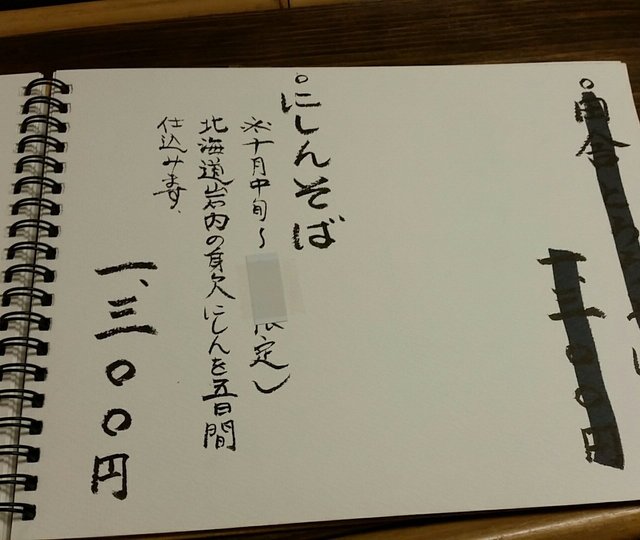 にしんそば
※十月中旬〜 限定)
北海道岩内の身欠にしんを五日間
仕込みます、
一、三〇〇円